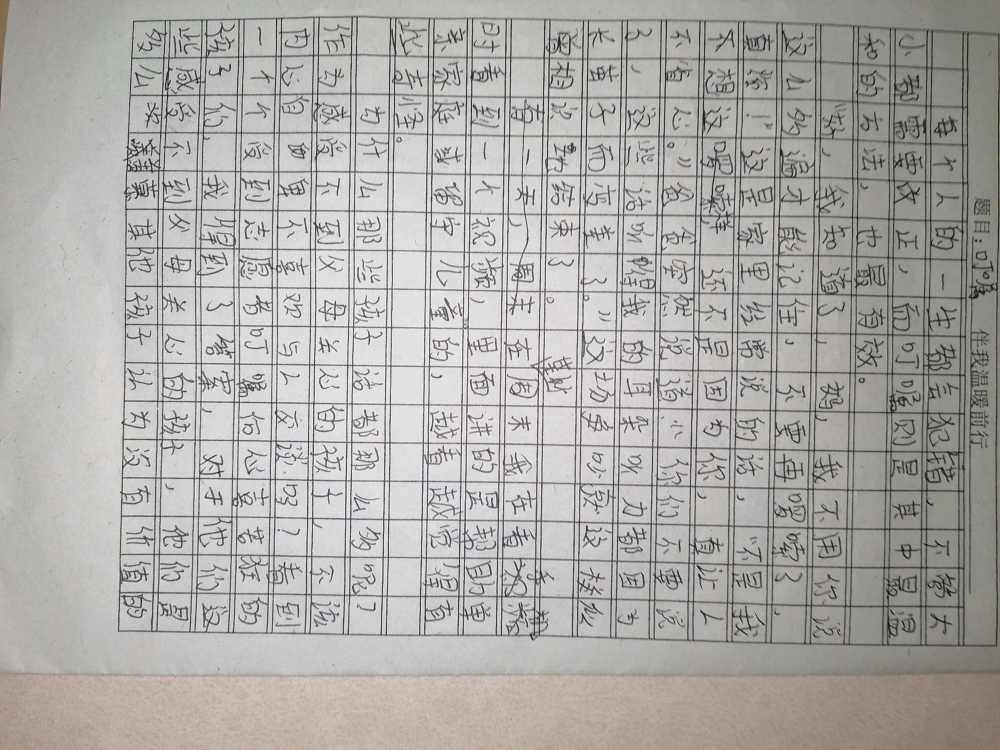 题目:叮嘱 伴我温暖前行
每个人的一生都会犯错,不管大
小都需要改正,而叮嘱则是其中最温
和的方法,也最有效。
"好,我知道了,妈,我不用你说
这么多遍才能记住,不要再唠叨了,
真烦!"这是家里经常说的话,"不是我
不想这唠叨,还不是因为你,真让人
不省心。"爸爸突然说道"你们不要说
了,这些话听得我的耳朵听力都因为
长茧子而变差了。"这场争吵就这样似
曾相识的结束了。
有一天,在周末我在看视频
时看到一个视频,里面讲的是帮助单
亲家庭、留守儿童的,越看越觉得有
些奇怪。
为什么那些孩子话都那么多呢?
作为感受不到父母关心的孩子,不该
内心自卑不喜欢与人交谈吗?看到
一个个收到志愿者叮嘱后心喜若狂的
孩子们,我得到了答案,对于他们这
些感受不到父母关心的孩子,他们是
多么 其他孩子认为没有价值的